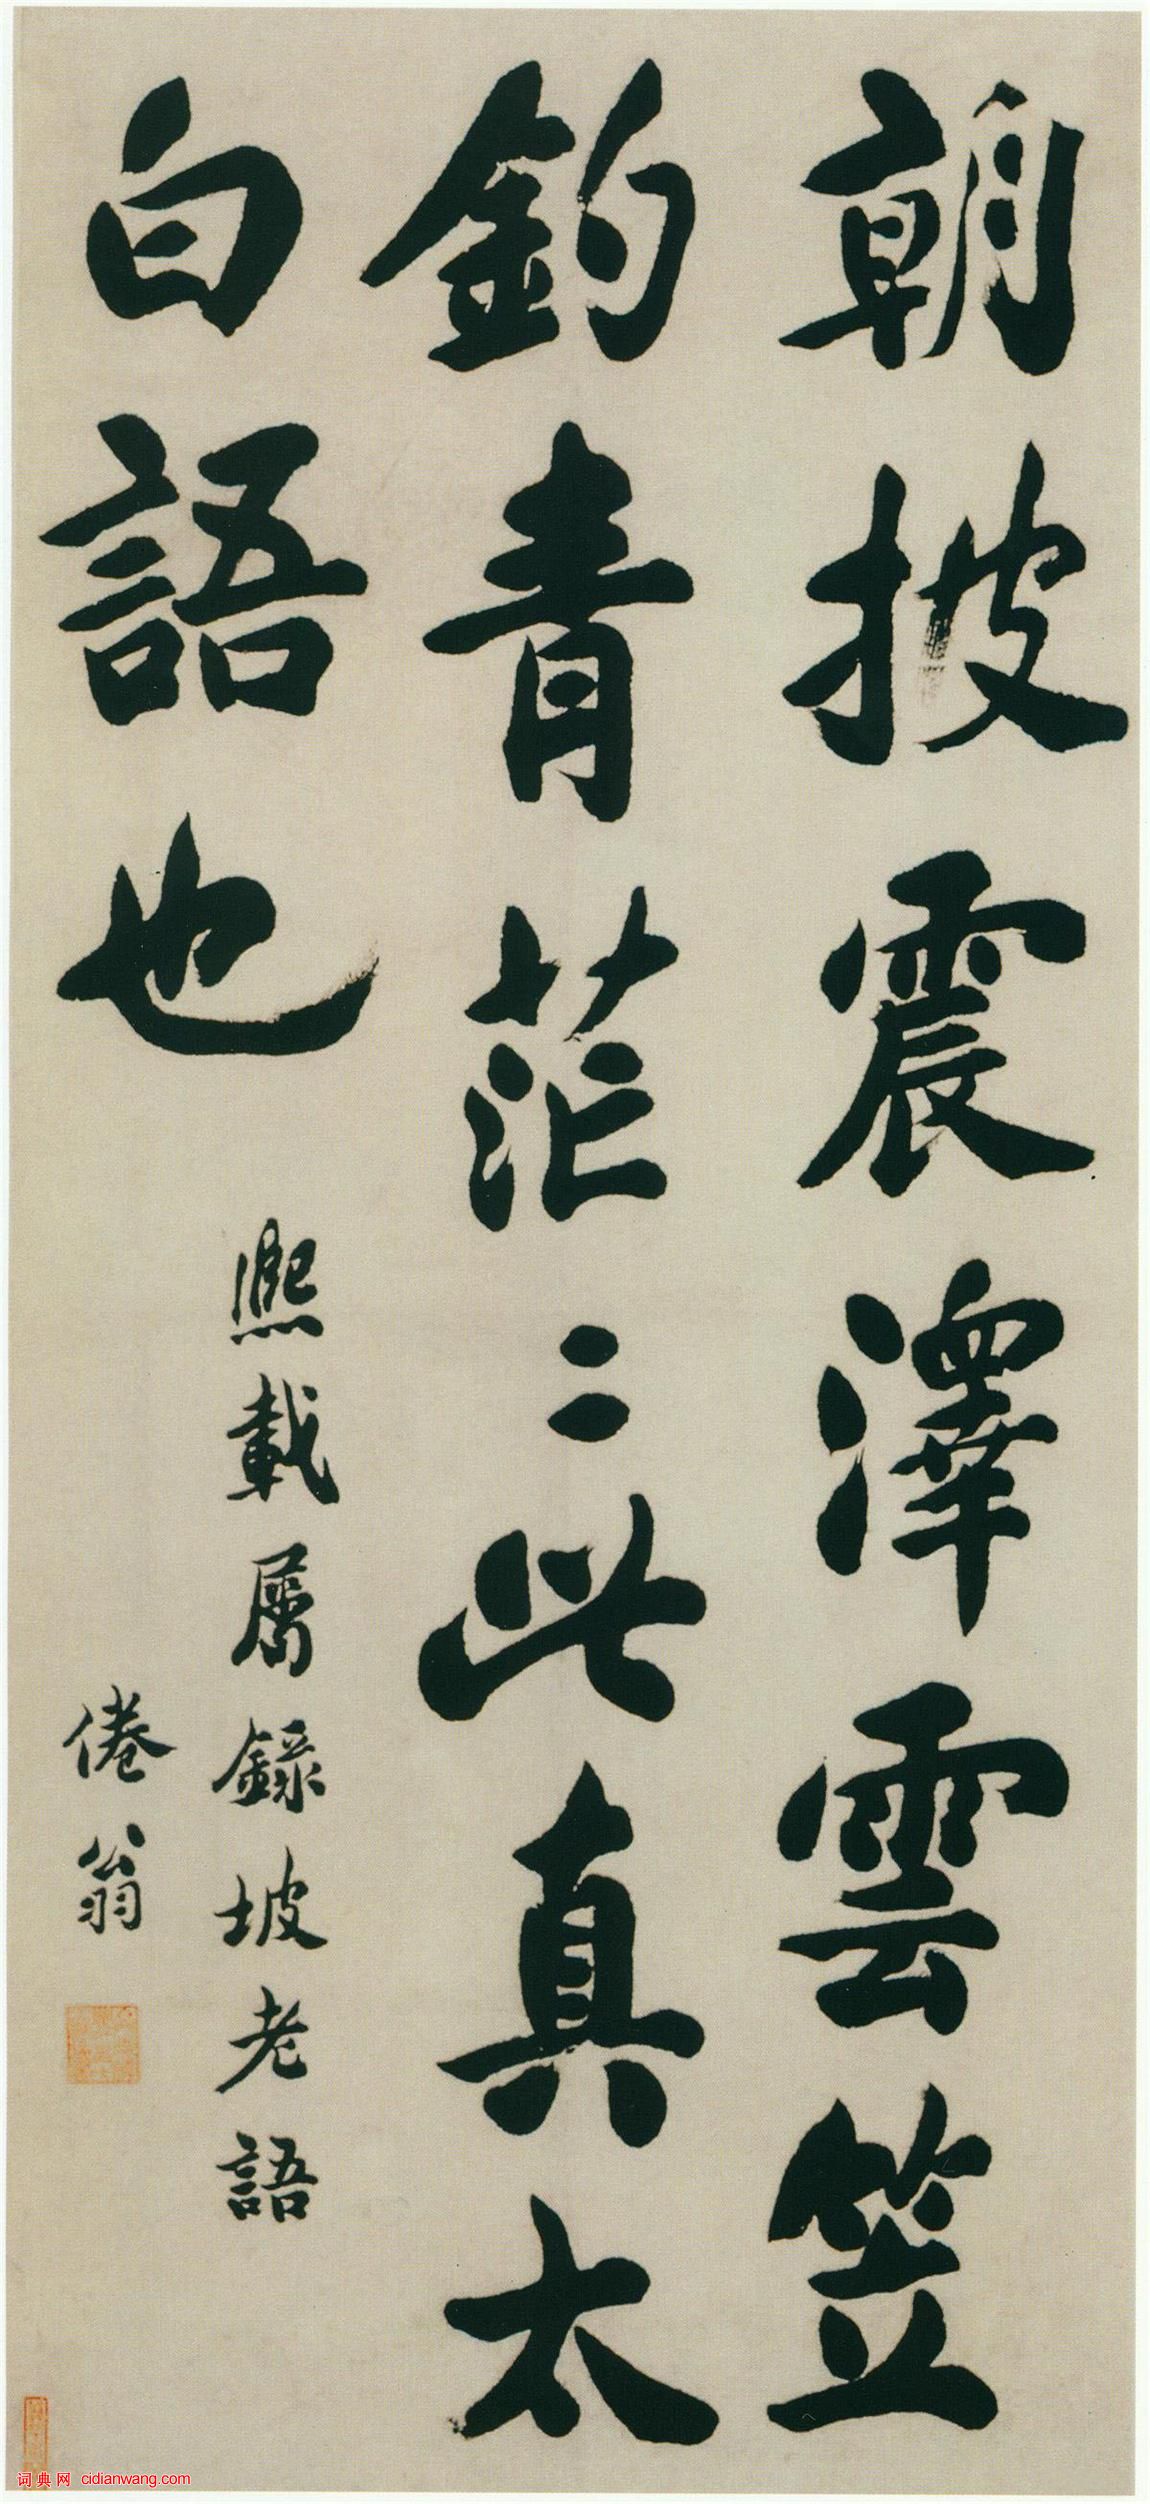 朝披震澤雲笠
釣青茫〻此真太
白語也
熙載屬錄坡老語
倦翁
词典网 cidianwang.com